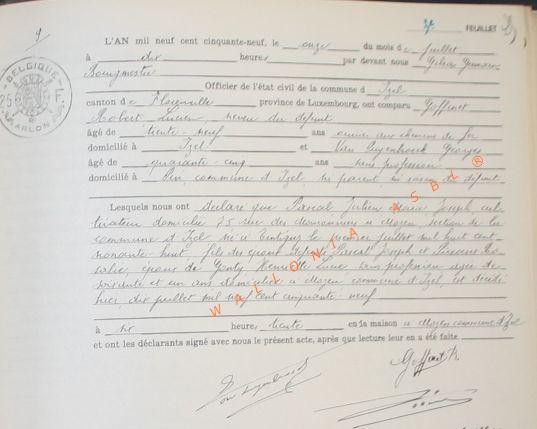 9
2e FEUILLET
BELGIQUE
ARLON
L'AN mil neuf cent cinquante-neuf, le onze du mois de juillet
à dix heures par devant nous
Bourgmestre
Officier de l'état civil de la commune d Izel
canton de Florenville province de Luxembourg, ont comparu Goffinet
Robert Lucien, neveu du défunt
âgé de trente-neuf ans ouvrier aux chemins de fer
domicilié à Izel et Van Georges
âgé de quarante-cinq ans sans profession
domicilié à Pin, commune d'Izel, ni parent, ni voisin du défunt
Lesquels nous ont déclaré que Pascal Julien Joseph, cul-
tivateur domicilié 75 rue des à Moyen, section de la
commune d'Izel né à Tintigny le premier juillet mil huit cent
nonante huit, fils de Pascal Joseph et
époux de Henriette Lucie sans profession âgée de
soixante et un ans domiciliée à Moyen commune d'Izel, est décédé
hier, dix juillet mil neuf cent cinquante-neuf
à six heures trente en la maison à Moyen commune d'Izel
et ont les déclarants signé avec nous le présent acte, après que lecture leur en a été faite
Goffinet R.
WALLONIA ASBL ®